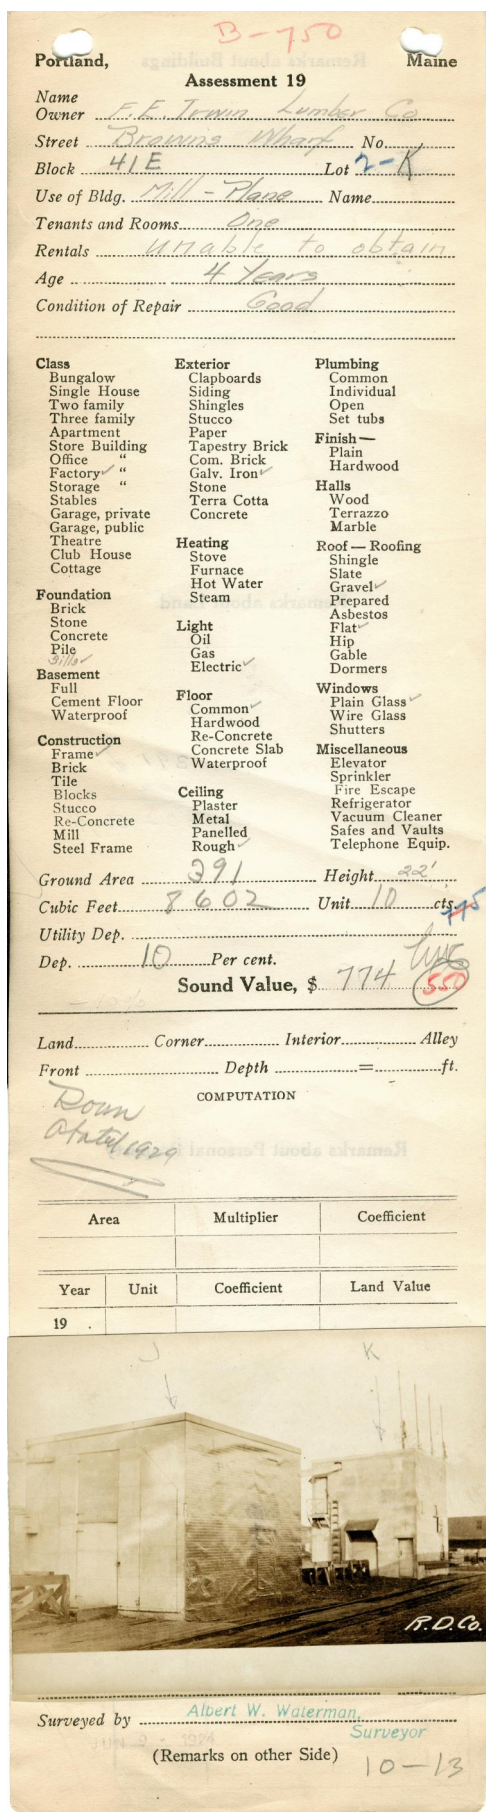 B-750
Portland, Maine
Assessment 19
Name
Owner F. E. Irwin Lumber Co
Street Browns Wharf No.
Block 41E Lot 2-K
Use of Bldg. Mill - Plane Name
Tenants and Rooms One
Rentals Unable to obtain
Age 4 Years
Condition of Repair Good
Class
Bungalow
Single House
Two family
Three family
Apartment
Store Building
Office "
Factory ✓ "
Storage "
Stables
Garage, private
Garage, public
Theatre
Club House
Cottage
Foundation
Brick
Stone
Concrete
Pile
Sills ✓
Basement
Full
Cement Floor
Waterproof
Construction
Frame ✓
Brick
Tile
Blocks
Stucco
Re-Concrete
Mill
Steel Frame
Exterior
Clapboards
Siding
Shingles
Stucco
Paper
Tapestry Brick
Com. Brick
Galv. Iron ✓
Stone
Terra Cotta
Concrete
Heating
Stove
Furnace
Hot Water
Steam
Light
Oil
Gas
Electric ✓
Floor
Common ✓
Hardwood
Re-Concrete
Concrete Slab
Waterproof
Ceiling
Plaster
Metal
Panelled
Rough ✓
Plumbing
Common
Individual
Open
Set tubs
Finish—
Plain
Hardwood
Halls
Wood
Terrazzo
Marble
Roof — Roofing
Shingle
Slate
Gravel ✓
Prepared
Asbestos
Flat ✓
Hip
Gable
Dormers
Windows
Plain Glass ✓
Wire Glass
Shutters
Miscellaneous
Elevator
Sprinkler
Fire Escape
Refrigerator
Vacuum Cleaner
Safes and Vaults
Telephone Equip.
Ground Area 391 Height 22'
Cubic Feet 8602 Unit 10 cts.
Utility Dep.
Dep. 10 Per cent.
Sound Value, $ 774 550
Land Corner Interior Alley
Front Depth = ft.
COMPUTATION
Down
1929
Area Multiplier Coefficient
Year Unit Coefficient Land Value
19 .
J K
R.D.Co.
Surveyed by Albert W. Waterman,
Surveyor
(Remarks on other Side) 10-13